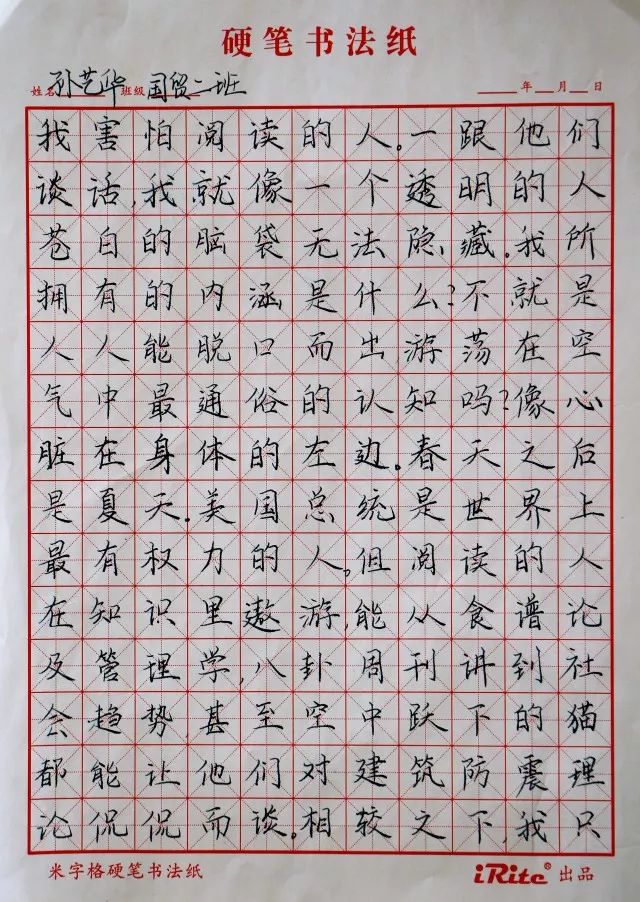 硬笔书法纸
姓名 孙艺华 班级 国贸二班 年 月 日
我害怕阅读的人。一跟他们
谈话,我就像一个透明的人
苍白的脑袋无法隐藏。我所
拥有的内涵是什么?不就是
人人能脱口而出游荡在空
气中最通俗的认知吗?像心
脏在身体的左边。春天之后
是夏天。美国总统是世界上
最有权力的人。但阅读的人
在知识里遨游,能从食谱论
及管理学,八卦周刊讲到社
会趋势,甚至空中跃下的猫
都能让他们对建筑防震理
论侃侃而谈。相较之下,我只
米字格硬笔书法纸 iRite® 出品